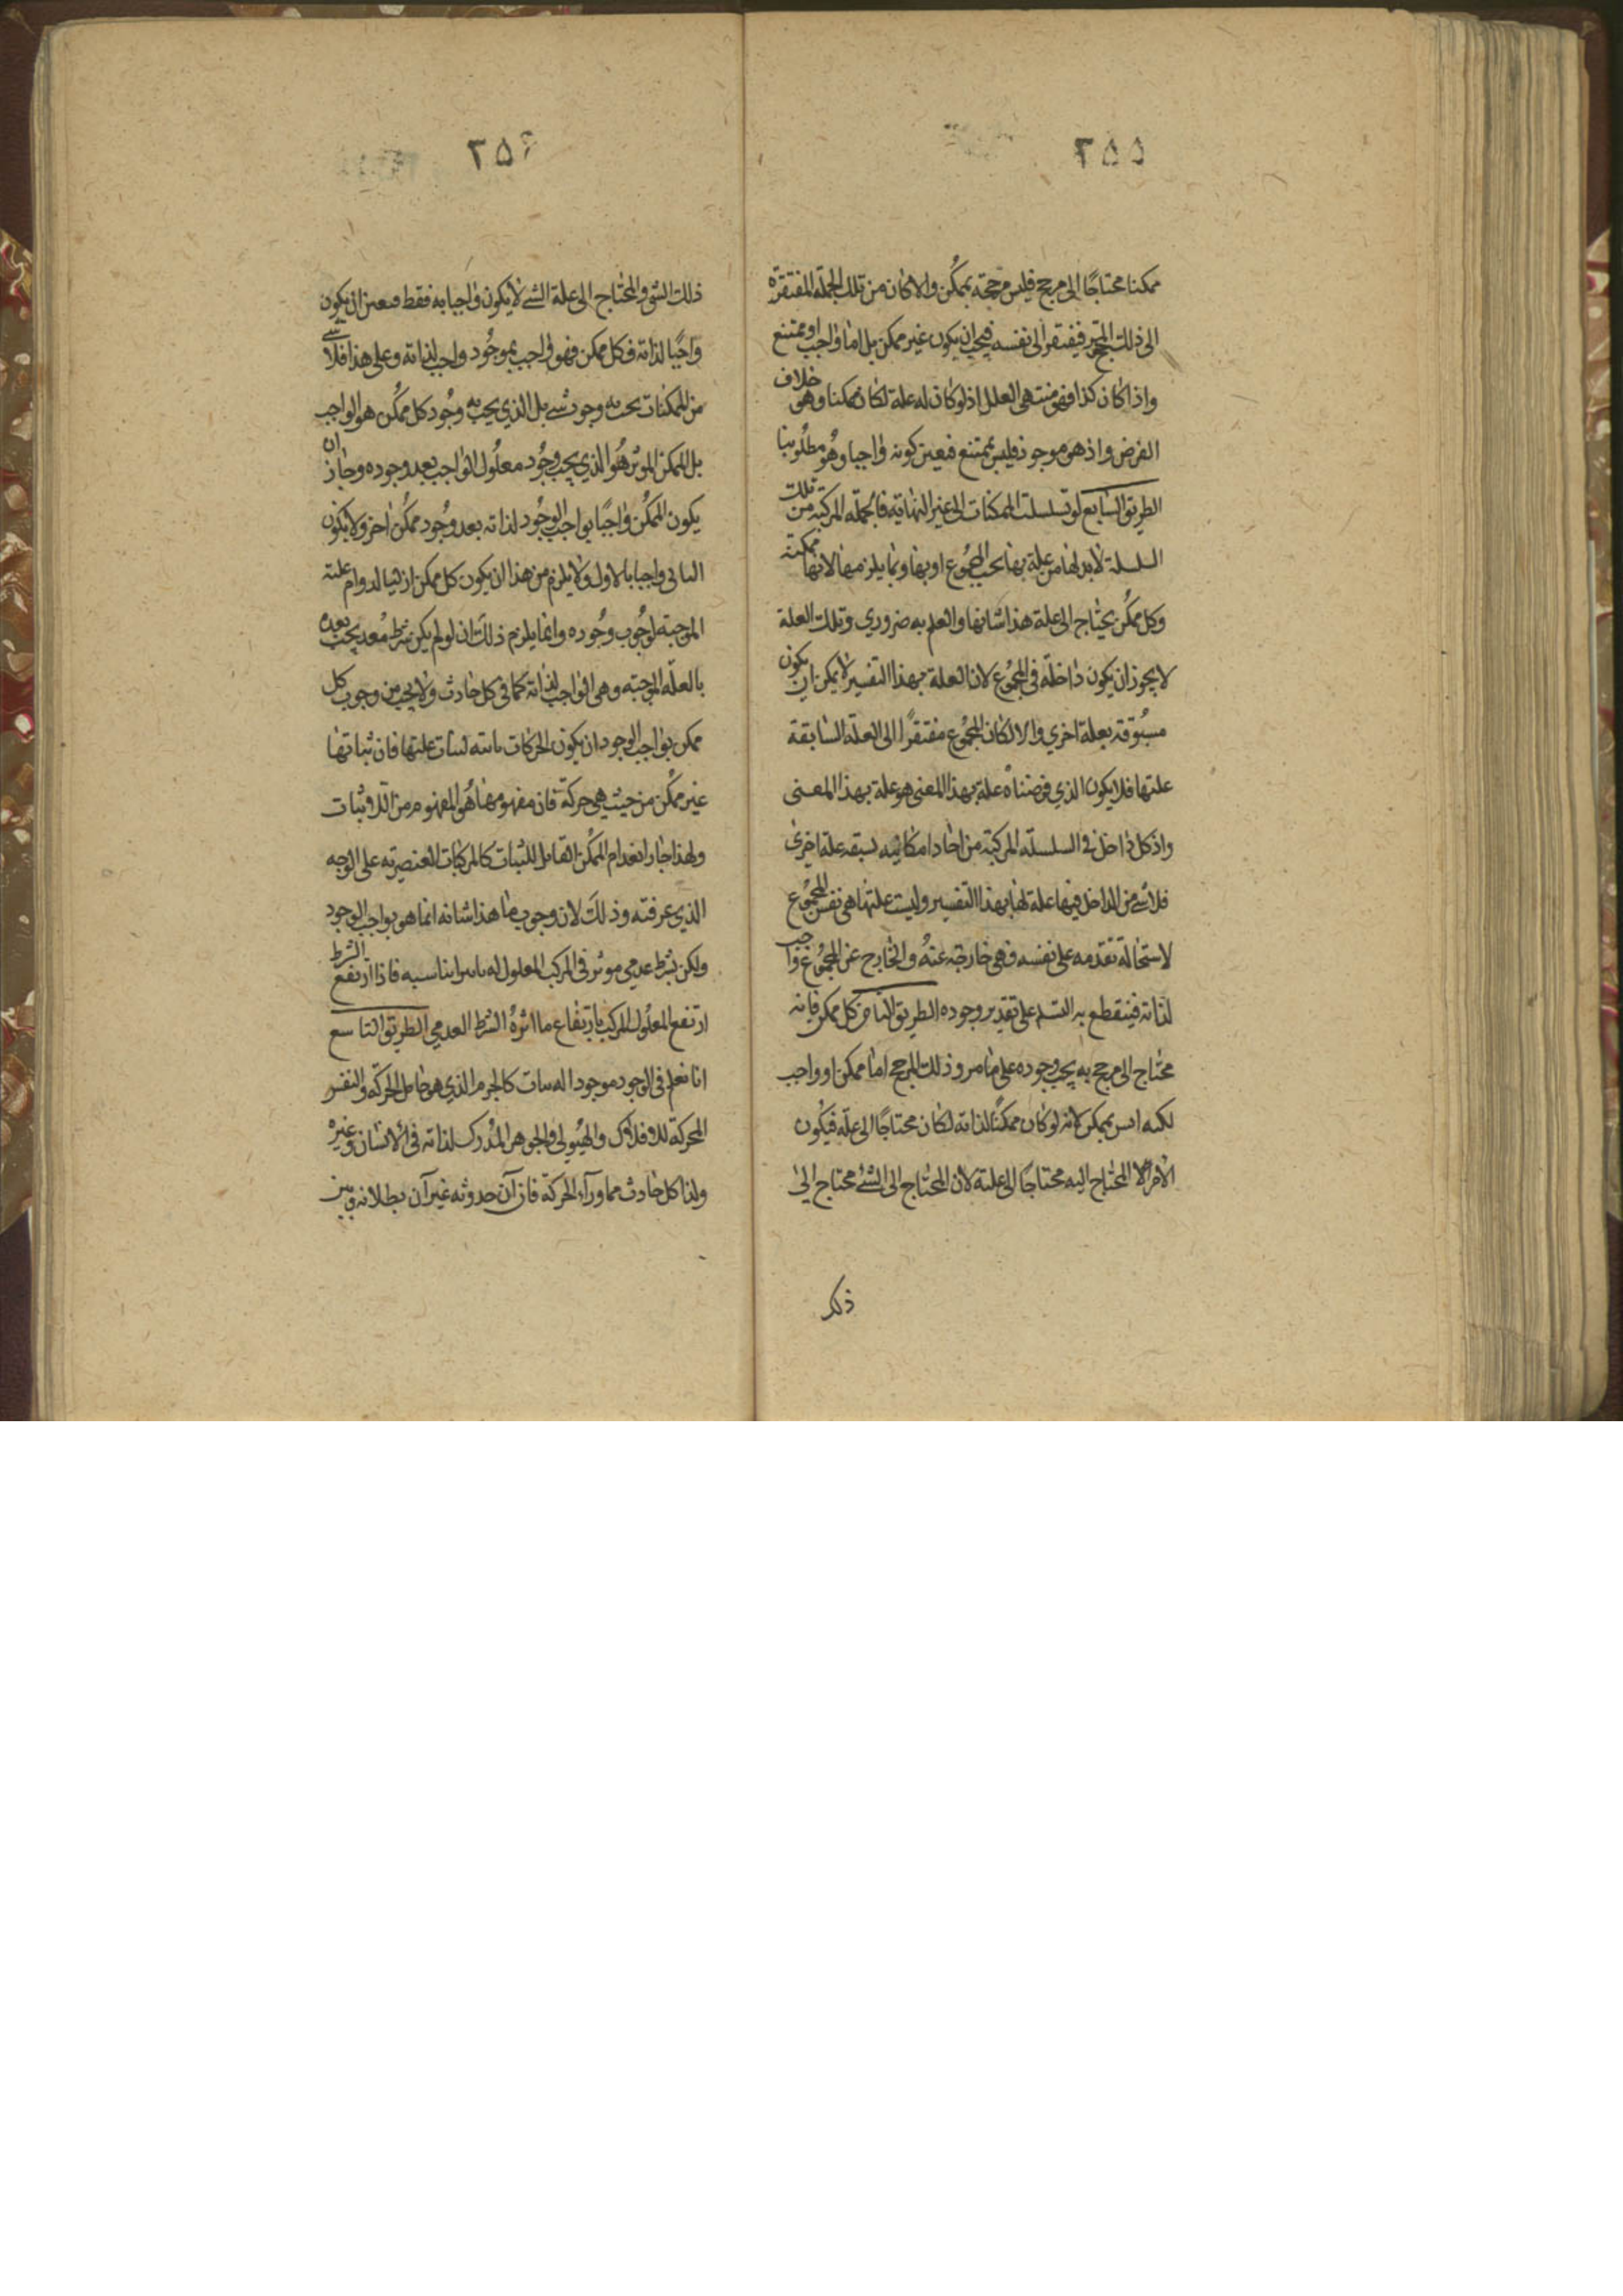 ٢٥٥
ممكنا محتاجًا إلى مرجح فليس مرجحه بممكن والا كان من تلك الجملة المفتقرة
الى ذلك المرجح فيفتقر الى نفسه فيجب ان يكون غير ممكن بل اما واجب او ممتنع
واذا كان كذا فهو منتهى العلل اذ لو كان له علة لكان ممكنا وهو خلاف
الفرض واذ هو موجود فليس بممتنع فتعين كونه واجبا وهو مطلوبنا
الطريق السابع لو تسلسلت الممكنات الى غير النهاية فالجملة المركبة من تلك
السلسلة لا بد لها من علة بها يجب المجموع او بها وبما يلزم منها لانها ممكنة
وكل ممكن يحتاج الى علة هذا شانها والعلم به ضروري وتلك العلة
لا يجوز ان يكون داخلة في المجموع لان العلة بهذا التفسير لا يمكن ان يكون
مسبوقة بعلة اخرى والا لكان المجموع مفتقرًا الى العلة السابقة
علتها فلا يكون الذي فرضناه علة بهذا المعنى هو علة بهذا المعنى
واذ كل داخل في السلسلة المركبة من احاد امكانية تسبقه علة اخرى
فلا شئ من الداخل فيها علة لها بهذا التفسير وليست علتها هي نفس المجموع
لاستحالة تقدمه على نفسه فهي خارجة عنه والخارج عن المجموع واجب
لذاته فينقطع به التسلسل على تقدير وجوده الطريق الثامن كل ممكن فانه
محتاج الى مرجح به يجب وجوده على ما مر وذلك المرجح اما ممكن او واجب
لكنه ليس بممكن لانه لو كان ممكنًا لذاته لكان محتاجًا الى علة فيكون
الامر المحتاج اليه محتاجًا الى علته لان المحتاج الى الشئ محتاج الى
ذلك
٢٥٦
ذلك الشئ والمحتاج الى علة الشئ لا يكون واجبا به فقط فتعين ان يكون
واجبًا لذاته فكل ممكن فهو واجب بموجود واجب لذاته وعلى هذا فلا شئ
من الممكنات يجب به وجود شئ بل الذي يجب به وجود كل ممكن هو الواجب
بل الممكن الموثر هو الذي يجب وجود معلول الواجب بعد وجوده وجاز ان
يكون الممكن واجبًا بواجب الوجود لذاته بعد وجود ممكن اخر ولا يكون
الثاني واجبا بالاول ولا يلزم من هذا ان يكون كل ممكن ازليا لدوام علته
الموجبة لوجوب وجوده وانما يلزم ذلك ان لو لم يكن شرط معد يجب بعده
بالعلة الموجبة وهي الواجب لذاته كما في كل حادث ولا يجب من وجوب كل
ممكن بواجب الوجود ان يكون الحركات ثابته لثبات علتها فان ثباتها
غير ممكن من حيث هي حركة فان مفهومها هو المفهوم من اللاثبات
ولهذا جاز انعدام الممكن القابل للثبات كالمركبات العنصرية على الوجه
الذي عرفته وذلك لان وجوب ما هذا شانه انما هو بواجب الوجود
ولكن بشرط عدمي موثر في المركب المعلول له يناسبه فاذا ارتفع الشرط
ارتفع المعلول المركب بارتفاع ما اثره الشرط العدمي الطريق التاسع
انا نعلم في الوجود موجودا له ثبات كالجرم الذي هو حامل الحركة والنفس
المحركة للافلاك والهيولى والجوهر المدرك لذاته في الانسان وغيره
ولذا كل حادث مما ورآء الحركة فان آن حدوثه غير آن بطلانه وبين